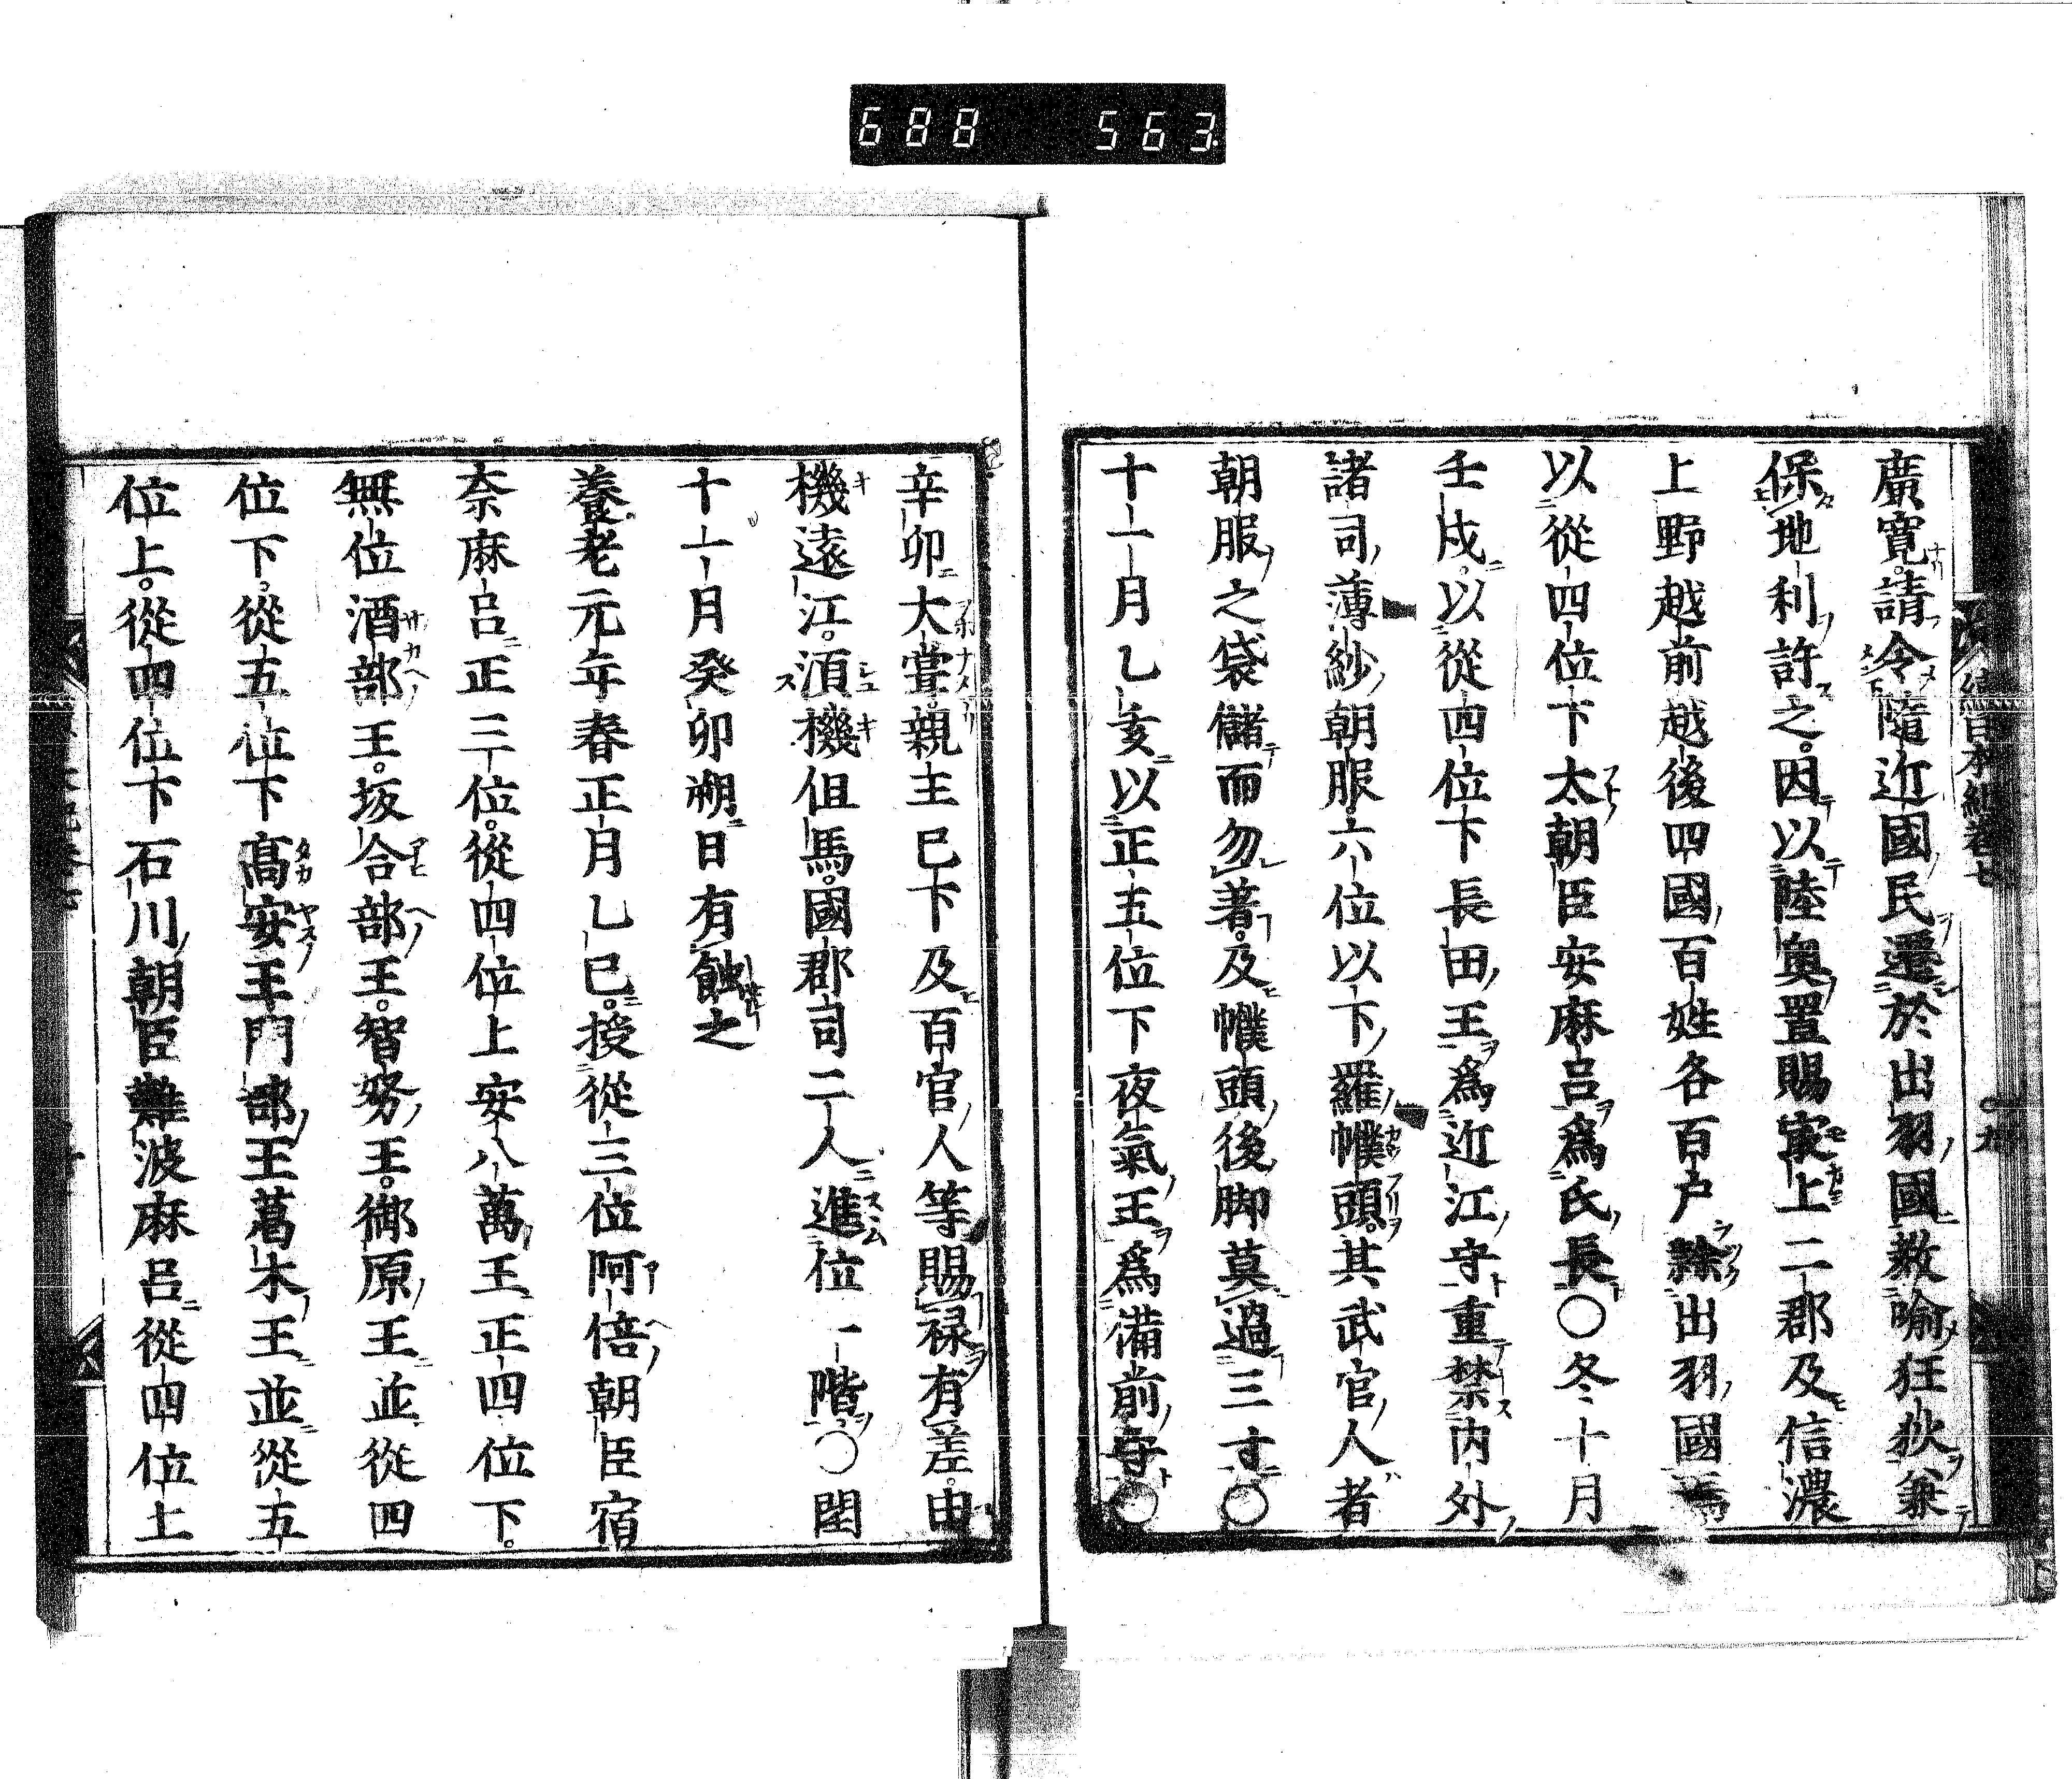 688 563
續日本紀卷七
○九
廣寬請令隨近國民遷於出羽國教喻狂狄兼
保地利許之因以陸奥置賜㝡上二郡及信濃
上野越前越後四國百姓各百戸隸出羽國焉
以從四位下太朝臣安麻呂爲氏長○冬十月
壬戌以從四位下長田王爲近江守重禁内外
諸司薄紗朝服六位以下羅幞頭其武官人者
朝服之袋儲而勿著及幞頭後脚莫過三寸○
十一月乙亥以正五位下夜氣王爲備前守○
辛卯大嘗親王已下及百官人等賜禄有差由
機遠江湏機但馬國郡司二人進位一階○閏
十一月癸卯朔日有蝕之
養老元年春正月乙巳授從三位阿倍朝臣宿
奈麻呂正三位從四位上安八萬王正四位下
無位酒部王坂合部王智努王御原王並從四
位下從五位下髙安王門部王葛木王並從五
位上從四位下石川朝臣難波麻呂從四位上